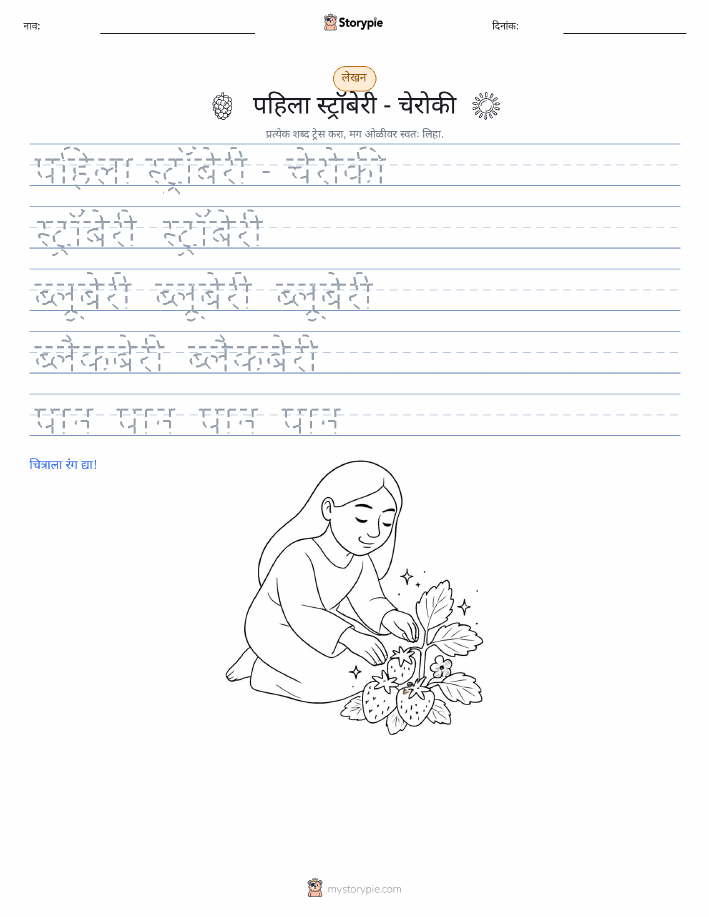 नाव:
Storypie
दिनांक:
लेखन
पहिला स्ट्रॉबेरी - चेरोकी
प्रत्येक शब्द ट्रेस करा, मग ओळीवर स्वतः लिहा.
पहिला स्ट्रॉबेरी - चेरोकी
स्ट्रॉबेरी स्ट्रॉबेरी
ब्लूबेरी ब्लूबेरी ब्लूबेरी
ब्लैकबेरी ब्लैकबेरी
पान पान पान पान
चित्राला रंग द्या!
mystorypie.com